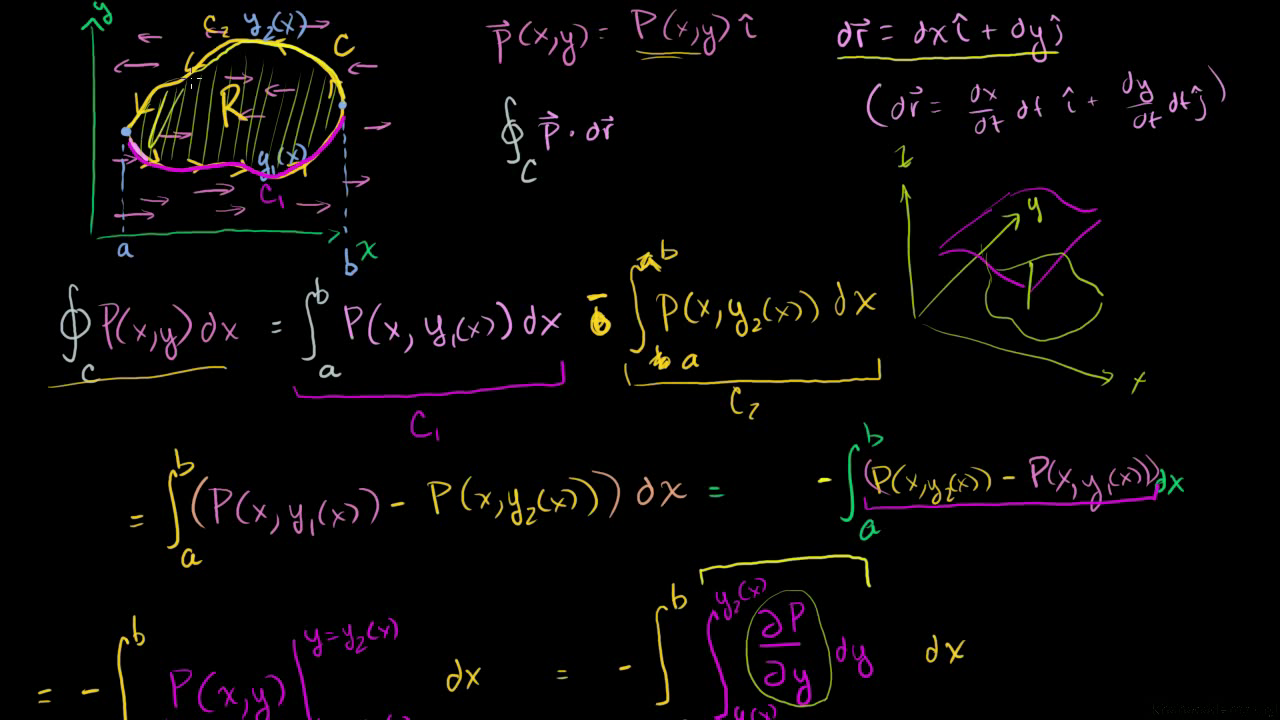 y
C₂ y₂(x) C
R
y₁(x)
C₁
a b x
P⃗(x,y) = P(x,y) î
∮_C P⃗ · dr⃗
dr⃗ = dx î + dy ĵ
(dr⃗ = dx/dt dt î + dy/dt dt ĵ)
z
y
x
∮_C P(x,y) dx = ∫_a^b P(x, y₁(x)) dx - ∫_a^b P(x, y₂(x)) dx
C₁ C₂
= ∫_a^b (P(x, y₁(x)) - P(x, y₂(x))) dx = - ∫_a^b (P(x, y₂(x)) - P(x, y₁(x))) dx
= - ∫^b P(x,y) |^{y=y₂(x)} dx = - ∫^b ∫_{y₁(x)}^{y₂(x)} ∂P/∂y dy dx